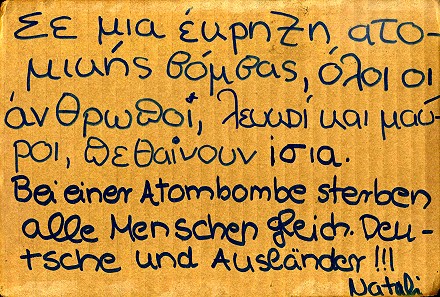 Σε μια έκρηξη ατο-
μικής βόμβας, όλοι οι
άνθρωποι, λευκοί και μαύ-
ροι, πεθαίνουν ίσια.
Bei einer Atombombe sterben
alle Menschen gleich. Deu-
tsche und Ausländer!!!
Natali